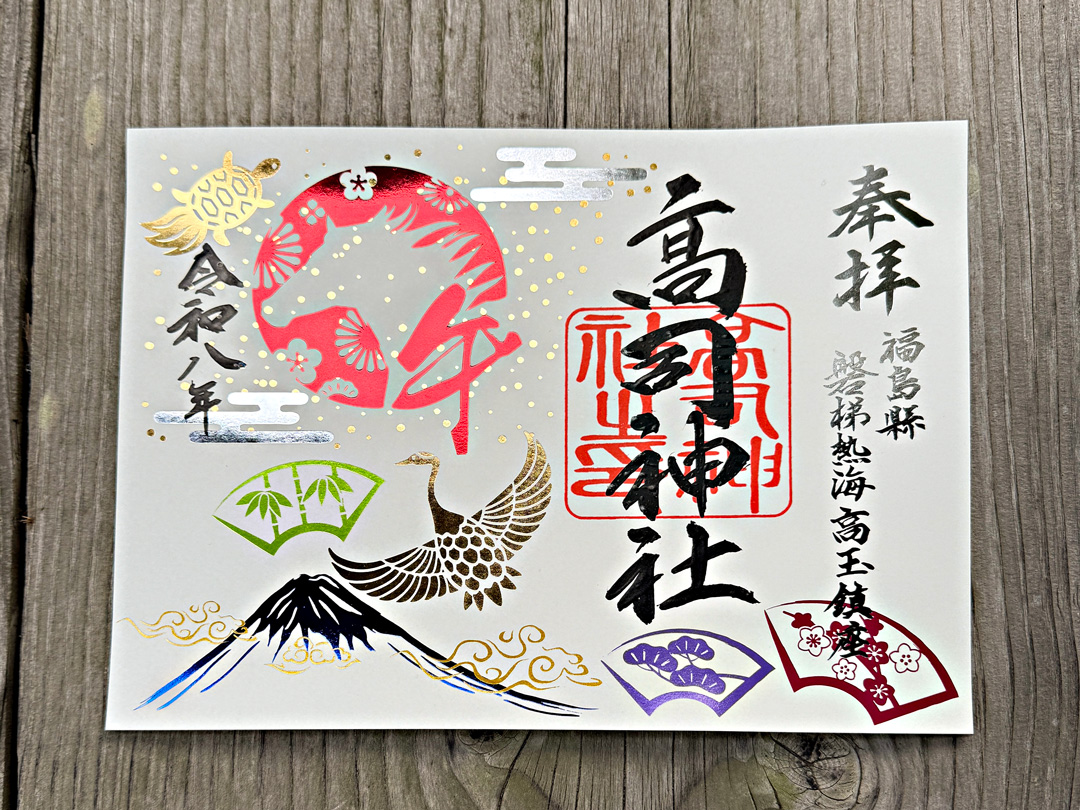 奉拝
福島縣
磐梯熱海高玉鎮座
高司神社
午
令和八年